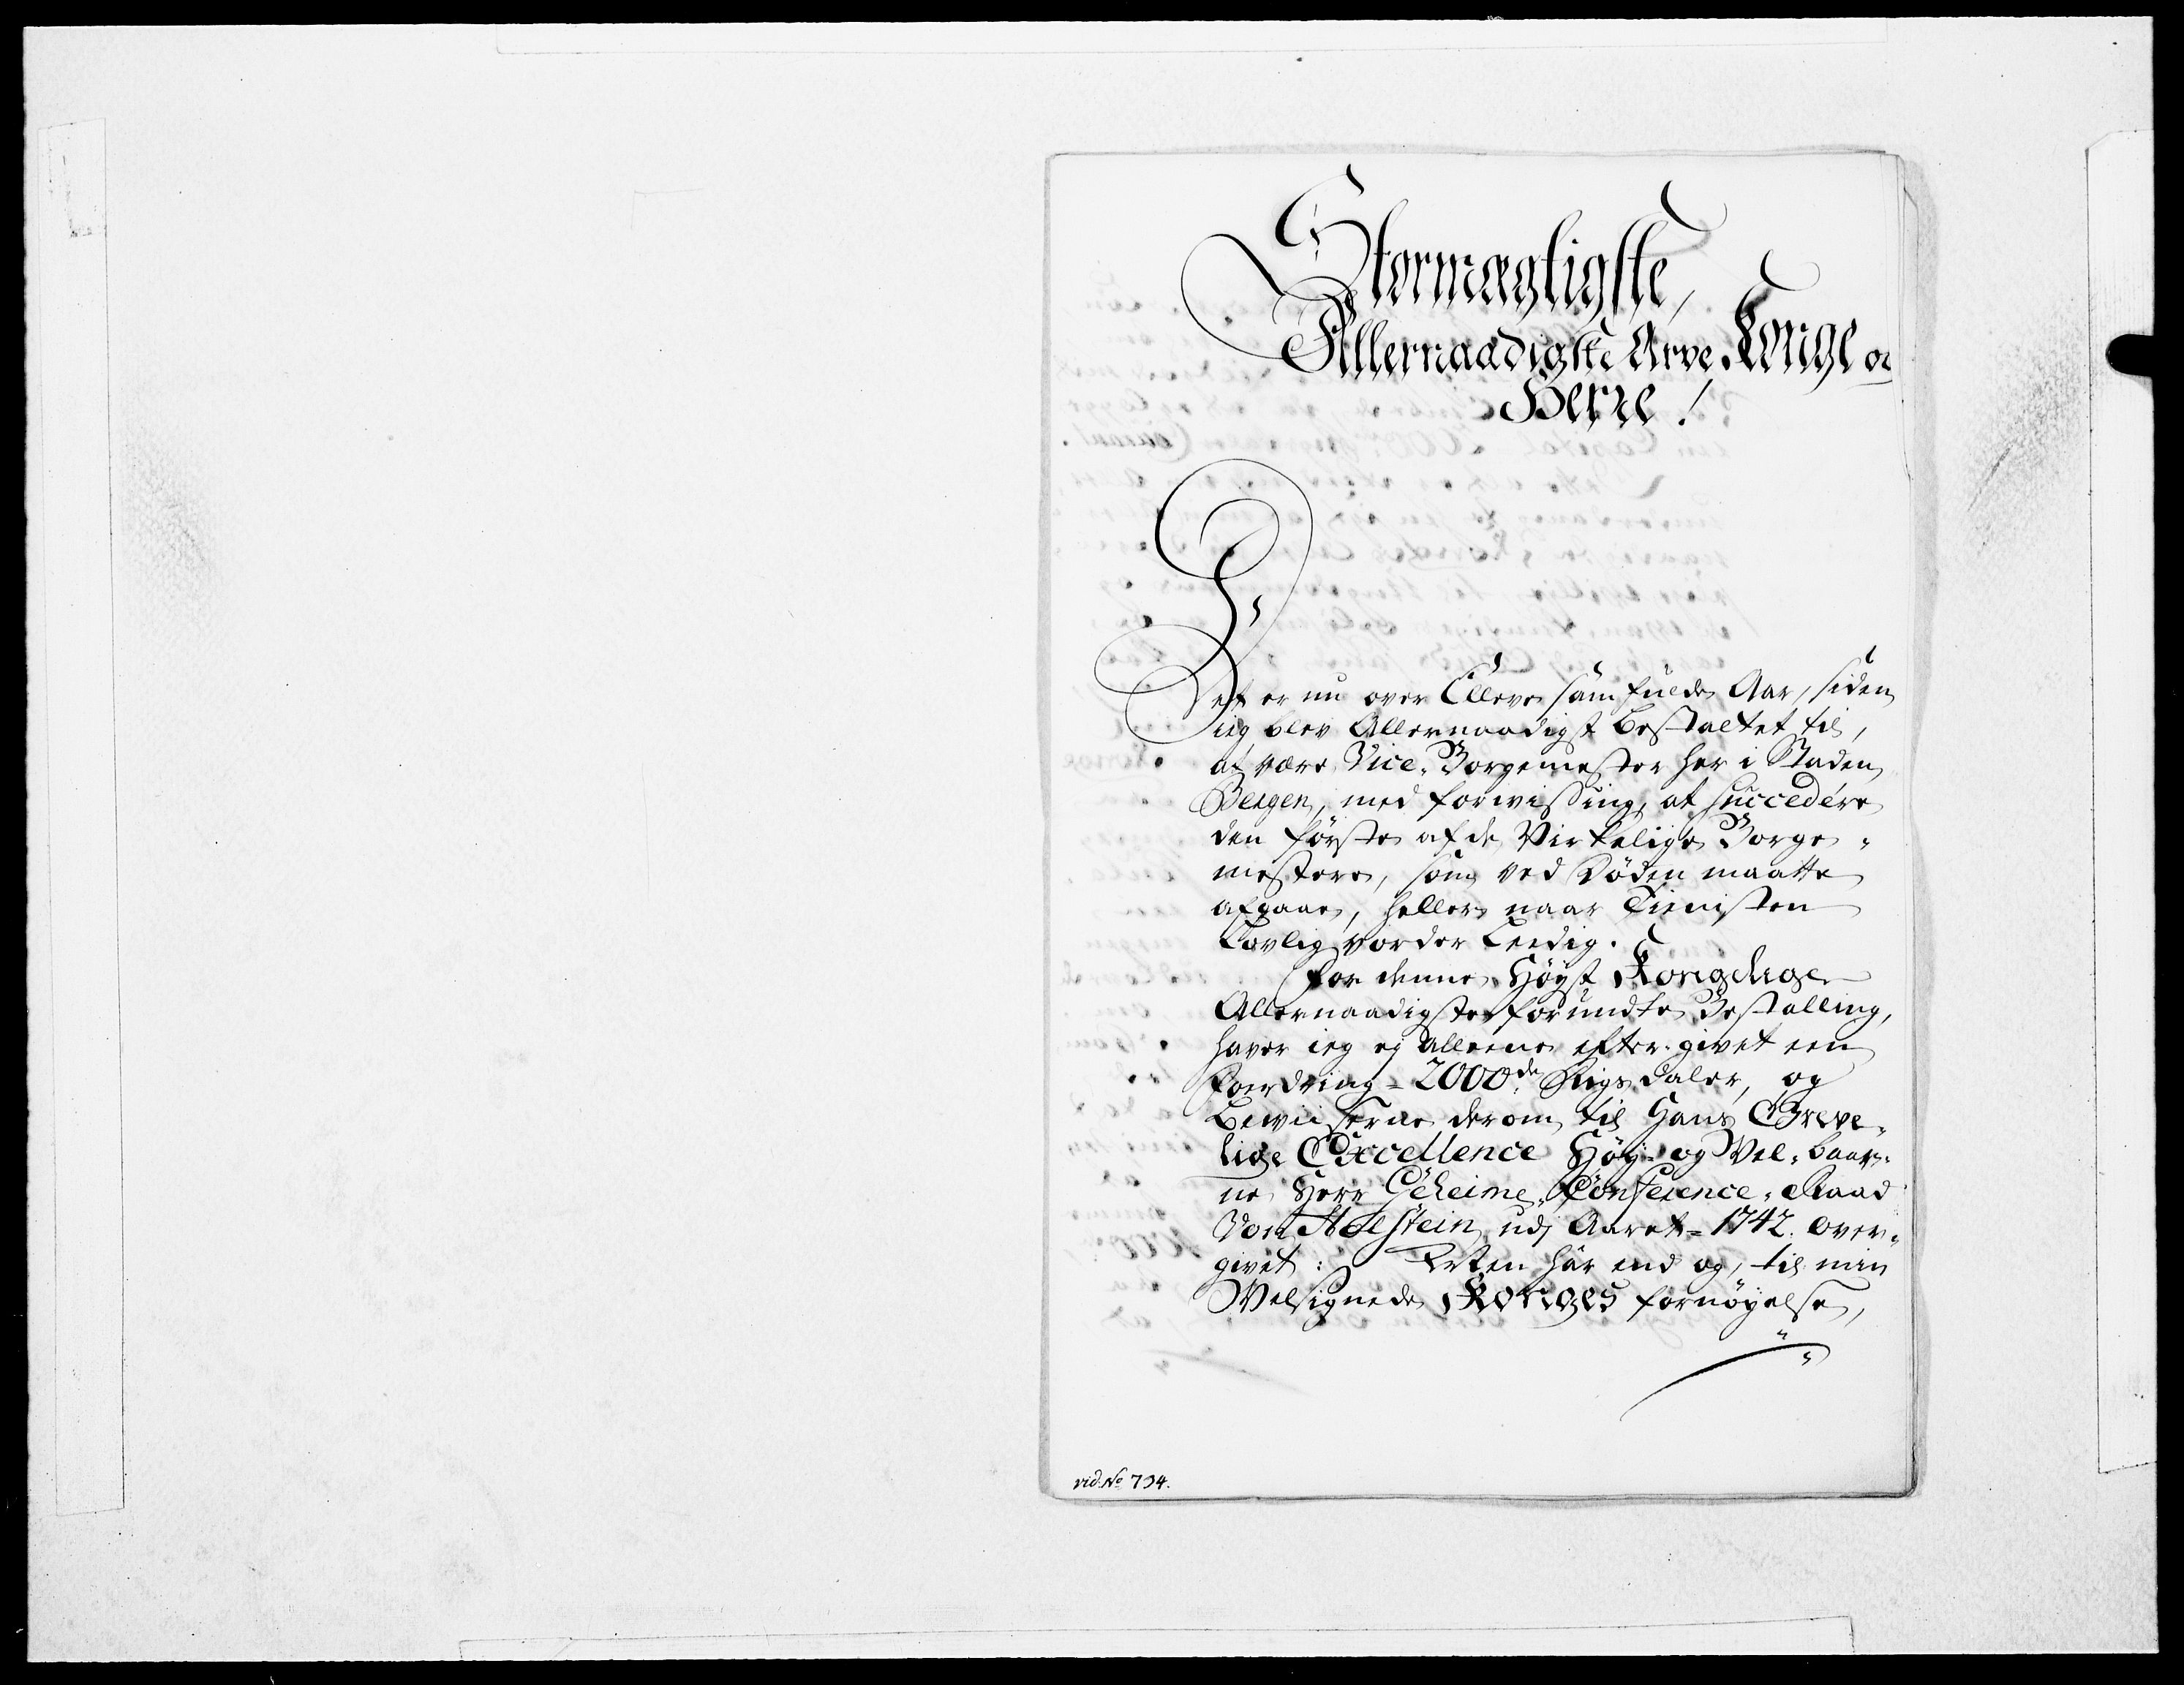 Stormægtigste,
Allernaadigste Arve-Konge og
Herre!
Det er nu over Elleve sam fulde Aar, siden
ieg blev Allernaadigst bestaltet til,
at være Vice-Borgemester her i Staden
Bergen, med forvissing, at succedére
den første af de Virkelige Borge-
mestere, som ved Døden maatte
afgaae, heller naar Tienisten
Lovlig vorder Leedig.
For denne Høyst Kongelige
Allernaadigste forundte Bestalling,
haver ieg ej alleene efter-givet een
Fordring = 2000de Rigsdaler, og
Beviiserne derom til Hans Greve-
lige Excellence Høy- og Vel-baar-
ne Herr Geheime-Conference-Raad
Von Holstein udj Aaret = 1742. over-
givet: Men har end og, til min
Velsignede Konges fornøyelse,
vid. No 734.